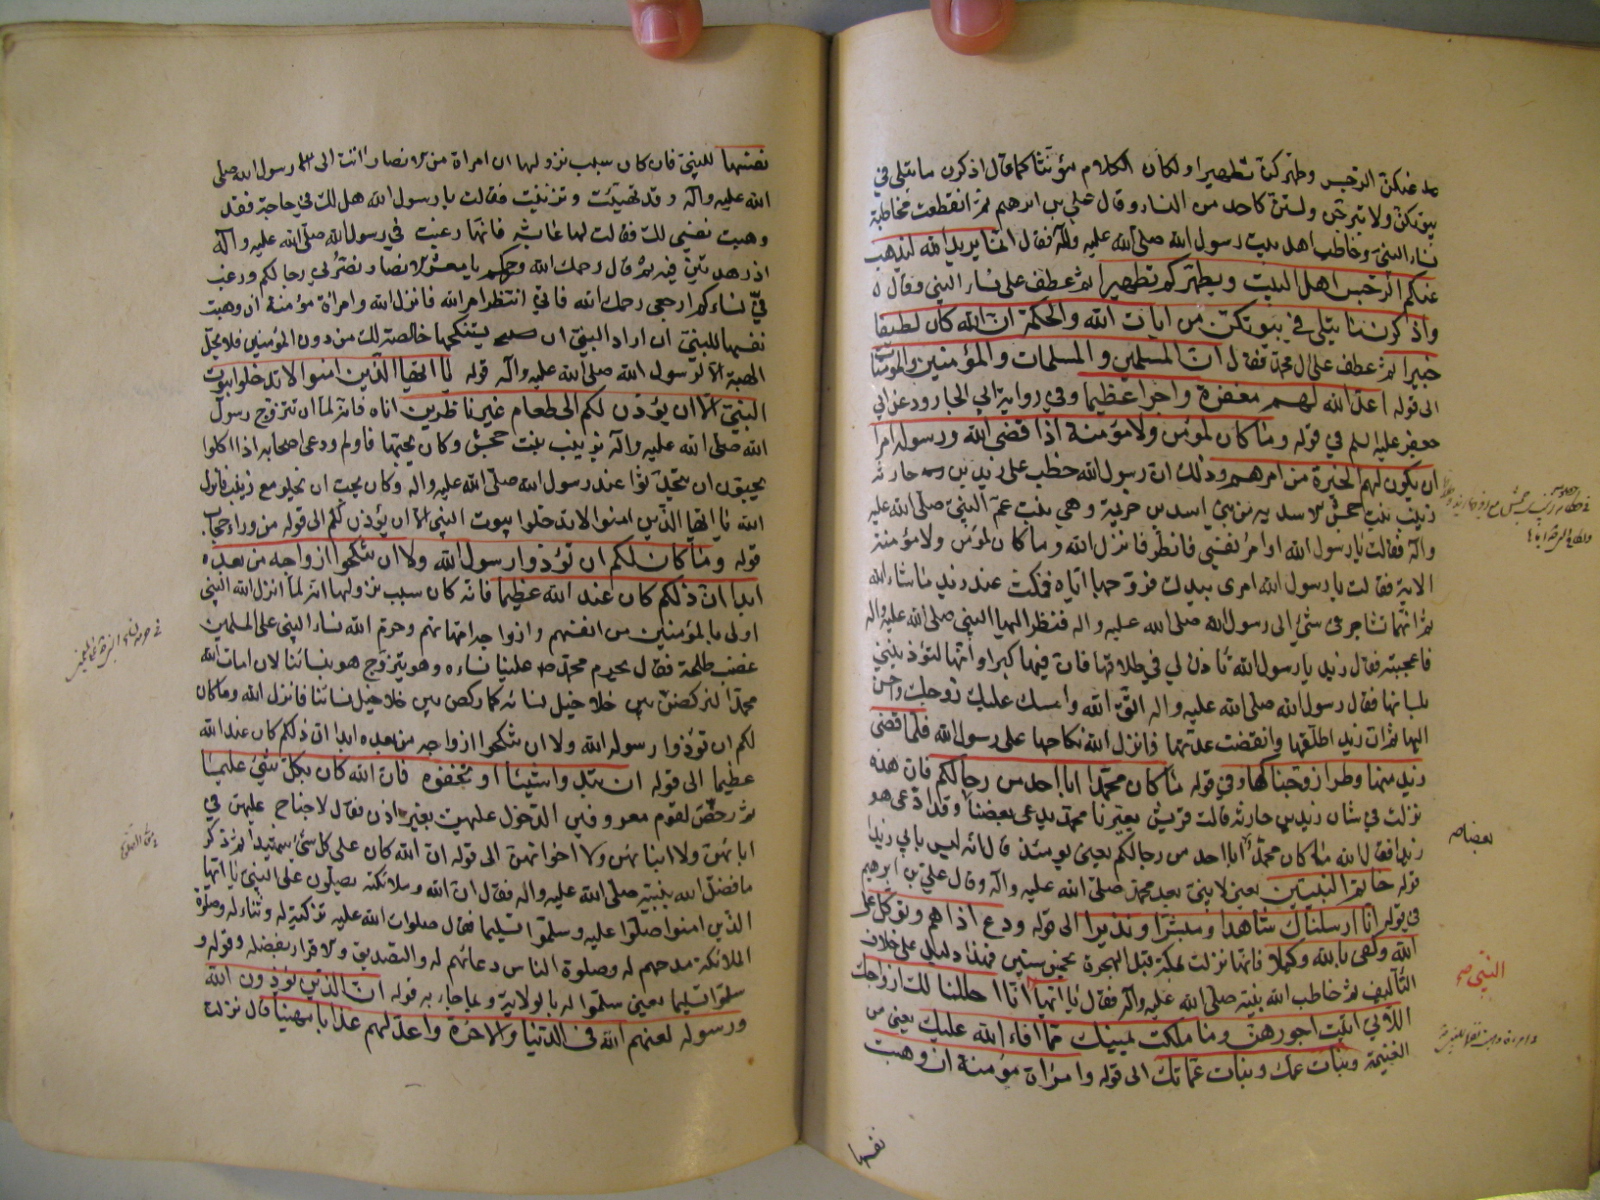 عنكن الرجس وطهركن تطهيرا ولكان الكلام مؤنثا كما قال اذكرن ما يتلى في
بيوتكن ولا تبرجن ولستن كاحد من النساء وقال علي بن ابرهيم ثم انقطعت مخاطبة
نساء النبي وخاطب اهل بيت رسول الله صلى الله عليه وآله فقال انما يريد الله ليذهب
عنكم الرجس اهل البيت ويطهركم تطهيرا ثم عطف على نساء النبي وقال
واذكرن ما يتلى في بيوتكن من ايات الله والحكمة ان الله كان لطيفا
خبيرا ثم عطف على ال محمد فقال ان المسلمين والمسلمات والمؤمنين والمؤمنات
الى قوله اعد الله لهم مغفرة واجرا عظيما وفي رواية ابي الجارود عن ابي
جعفر عليه السلم في قوله وما كان لمؤمن ولا مؤمنة اذا قضى الله ورسوله امرا
ان يكون لهم الخيرة من امرهم وذلك ان رسول الله خطب على زيد بن حارثة
زينب بنت جحش الاسدية من بني اسد بن خزيمة وهي بنت عم النبي صلى الله عليه
وآله فقالت يا رسول الله اوامر نفسي فانظر فانزل الله وما كان لمؤمن ولا مؤمنة
الاية فقالت يا رسول الله امري بيدك فزوجها اياه فمكثت عند زيد ما شاء الله
ثم انهما تشاجرا في شئ الى رسول الله صلى الله عليه واله فنظر اليها النبي صلى الله عليه واله
فاعجبته فقال زيد يا رسول الله تأذن لي في طلاقها فان فيها كبرا وانها لتؤذيني
بلسانها فقال رسول الله صلى الله عليه واله اتق الله وامسك عليك زوجك واحسن
اليها ثم ان زيد اطلقها وانقضت عدتها فانزل الله نكاحها على رسول الله فلما قضى
زيد منها وطرا زوجناكها وفي قوله ما كان محمد ابا احد من رجالكم فان هذه
نزلت في شان زيد بن حارثة قالت قريش يعيرنا محمد يدعى بعضنا وقد ادعى هو
زيدا فقال الله ما كان محمد ابا احد من رجالكم يعني يومئذ قال انه ليس بابي زيد
قوله خاتم النبيين يعني لا نبي بعد محمد صلى الله عليه وآله وقال علي بن ابرهيم
في قوله انا ارسلناك شاهدا ومبشرا ونذيرا الى قوله ودع اذاهم وتوكل على
الله وكفى بالله وكيلا فانها نزلت بمكة قبل الهجرة بخمس سنين فهذا دليل على خلاف
التأليف ثم خاطب الله نبيه صلى الله عليه وآله فقال يا ايها انا احللنا لك ازواجك
اللاتي اتيت اجورهن وما ملكت يمينك مما افاء الله عليك يعني من
الغنيمة وبنات عمك وبنات عماتك الى قوله وامراة مؤمنة ان وهبت
نفسها
بعضا
النبي
نفسها للنبي فان كان سبب نزولها ان امراة من الانصار اتت الى رسول الله صلى
الله عليه وآله وقد تهيئت وتزينت فقالت يا رسول الله هل لك في حاجة فقد
وهبت نفسي لك فقالت لها عايشه فانها رغبت في رسول الله صلى الله عليه وآله
اذ زهدتن فيه ثم قال رحمك الله ورحمكم يا معشر الانصار نصرني رجالكم ورغبت
في نساءكم ارجعي رحمك الله فاني انتظر امر الله فانزل الله وامراة مؤمنة ان وهبت
نفسها للنبي ان اراد النبي ان يستنكحها خالصة لك من دون المؤمنين فلا تحل
الهبة الا لرسول الله صلى الله عليه وآله قوله يا ايها الذين امنوا لا تدخلوا بيوت
النبي الا ان يؤذن لكم الى طعام غير ناظرين اناه فانه لما ان تزوج رسول
الله صلى الله عليه وآله بزينب بنت جحش وكان يحبها فاولم ودعى اصحابه اذا اكلوا
يحبون ان يتحدثوا عند رسول الله صلى الله عليه واله وكان يحب ان يخلو مع زينب فانزل
الله يا ايها الذين امنوا لا تدخلوا بيوت النبي الا ان يؤذن لكم الى قوله من وراء حجاب
قوله وما كان لكم ان تؤذوا رسول الله ولا ان تنكحوا ازواجه من بعده
ابدا ان ذلكم كان عند الله عظيما فانه كان سبب نزولها انه لما انزل الله النبي
اولى بالمؤمنين من انفسهم وازواجه امهاتهم وحرم الله نساء النبي على المسلمين
غضب طلحة فقال يحرم محمد علينا نساءه وهو يتزوج هو بنسائنا لان امات الله
محمدا لنركضن بين خلاخيل نسائه كما ركض بين خلاخيل نسائنا فانزل الله وما كان
لكم ان تؤذوا رسول الله ولا ان تنكحوا ازواجه من بعده ابدا ان ذلكم كان عند الله
عظيما الى قوله ان تبدوا شيئا او تخفوه فان الله كان بكل شئ عليما
ثم رخص لقوم معروفين الدخول عليهن بغير اذن فقال لا جناح عليهن في
ابائهن ولا ابنائهن ولا اخوانهن الى قوله ان الله كان على كل شئ شهيدا ثم ذكر
ما فضل الله نبيه صلى الله عليه واله فقال ان الله وملائكته يصلون على النبي يا ايها
الذين امنوا صلوا عليه وسلموا تسليما فقال صلوات الله عليه تزكية له وثناء له وصلوة
الملائكة مدحهم له وصلوة الناس دعائهم له والتصديق والاقرار بفضله وقوله و
سلموا تسليما يعني سلموا له بالولاية وبما جاء به قوله ان الذين يؤذون الله
ورسوله لعنهم الله في الدنيا والاخرة واعد لهم عذابا مهينا قال نزلت